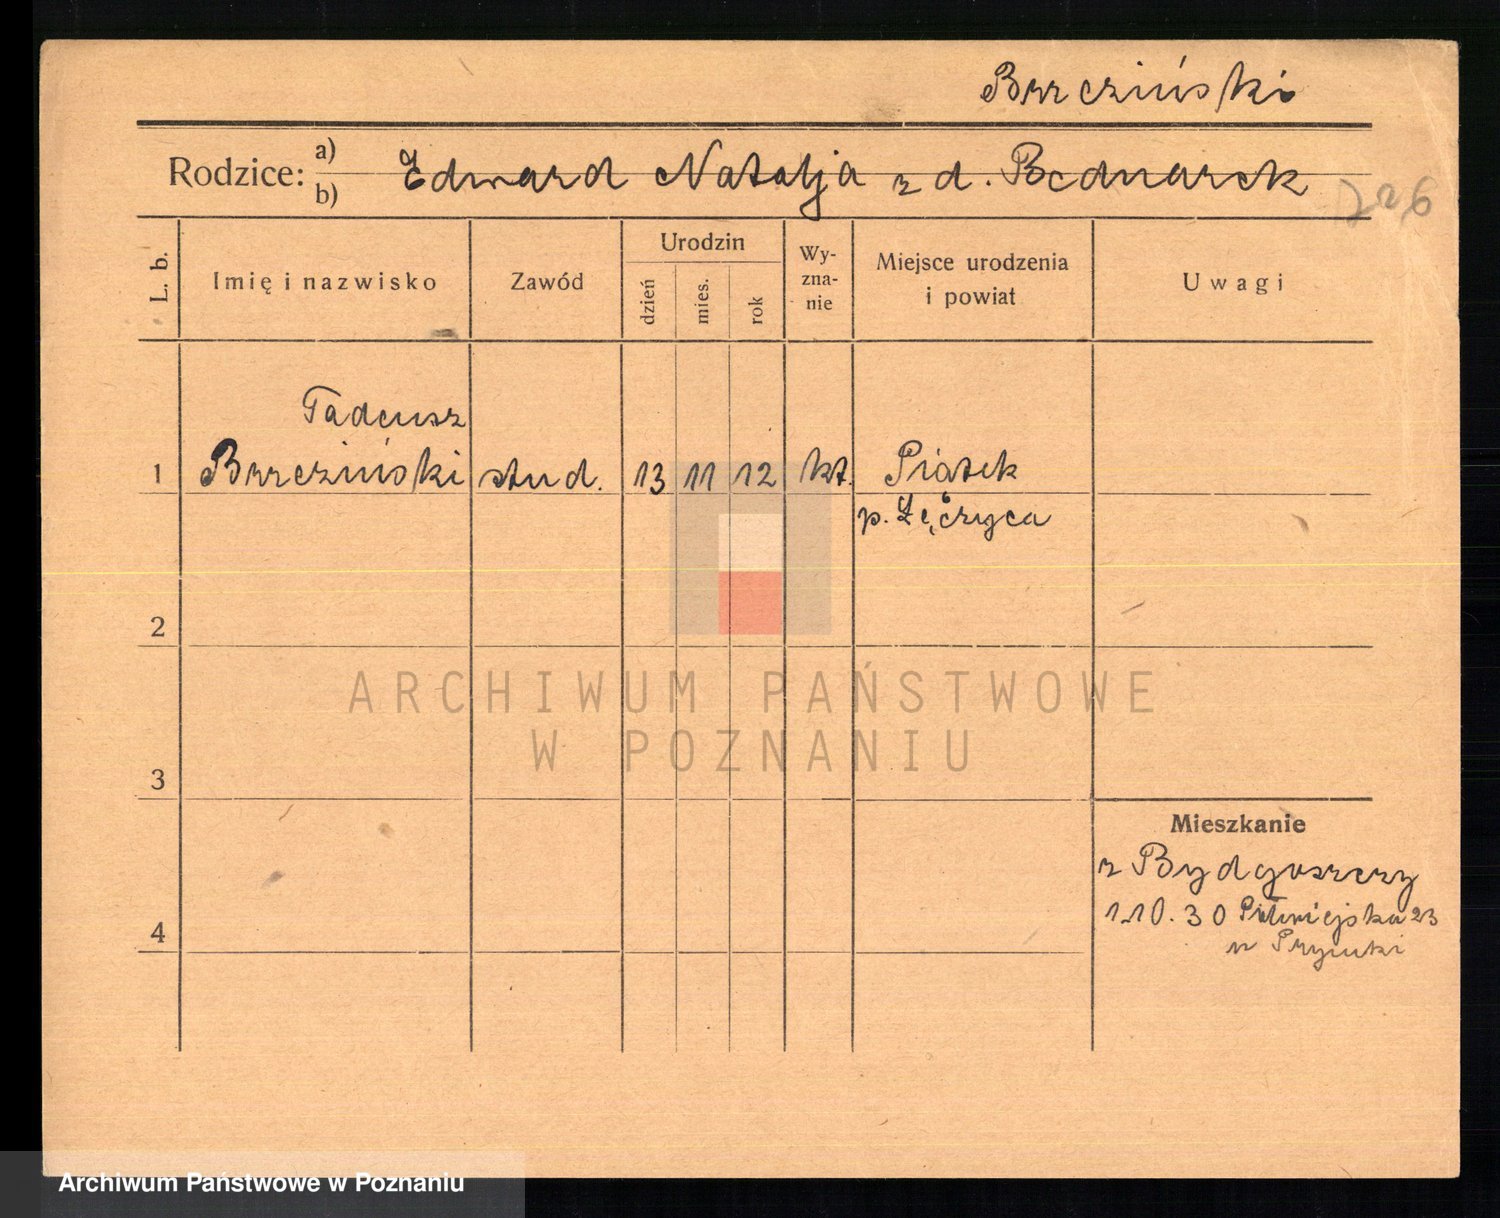 Brzeziński
Rodzice: a) b) Edward Natalja z d. Bednarek
L. b.
Imię i nazwisko
Zawód
Urodzin
dzień
mies.
rok
Wy-
zna-
nie
Miejsce urodzenia
i powiat
Uwagi
Tadeusz
1 Brzeziński stud. 13 11 12 kt. Piątek
p. Łęczyca
2
ARCHIWUM PAŃSTWOWE
W POZNANIU
3
Mieszkanie
z Bydgoszczy
1.10.30 23
4
Archiwum Państwowe w Poznaniu